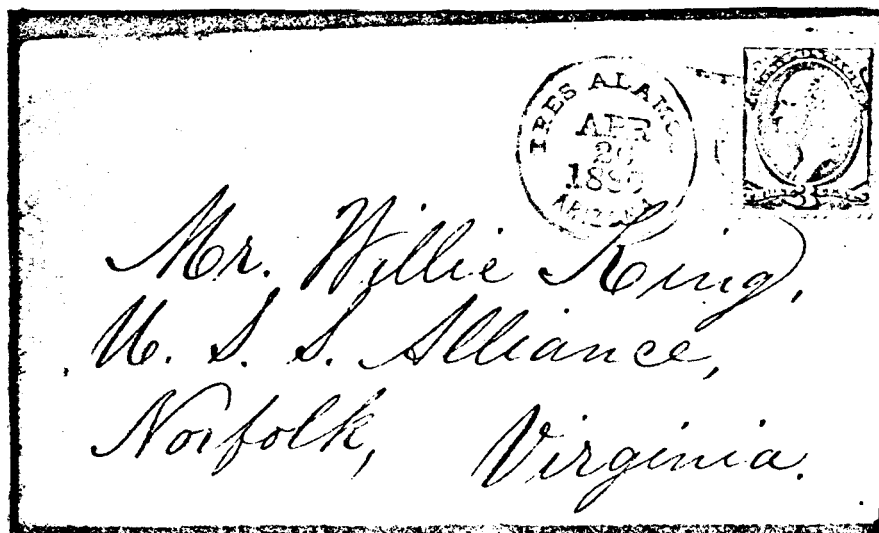 TRES ALAMO
APR
ARIZONA
3
Mr. Willie King,
U. S. S. Alliance,
Norfolk, Virginia.